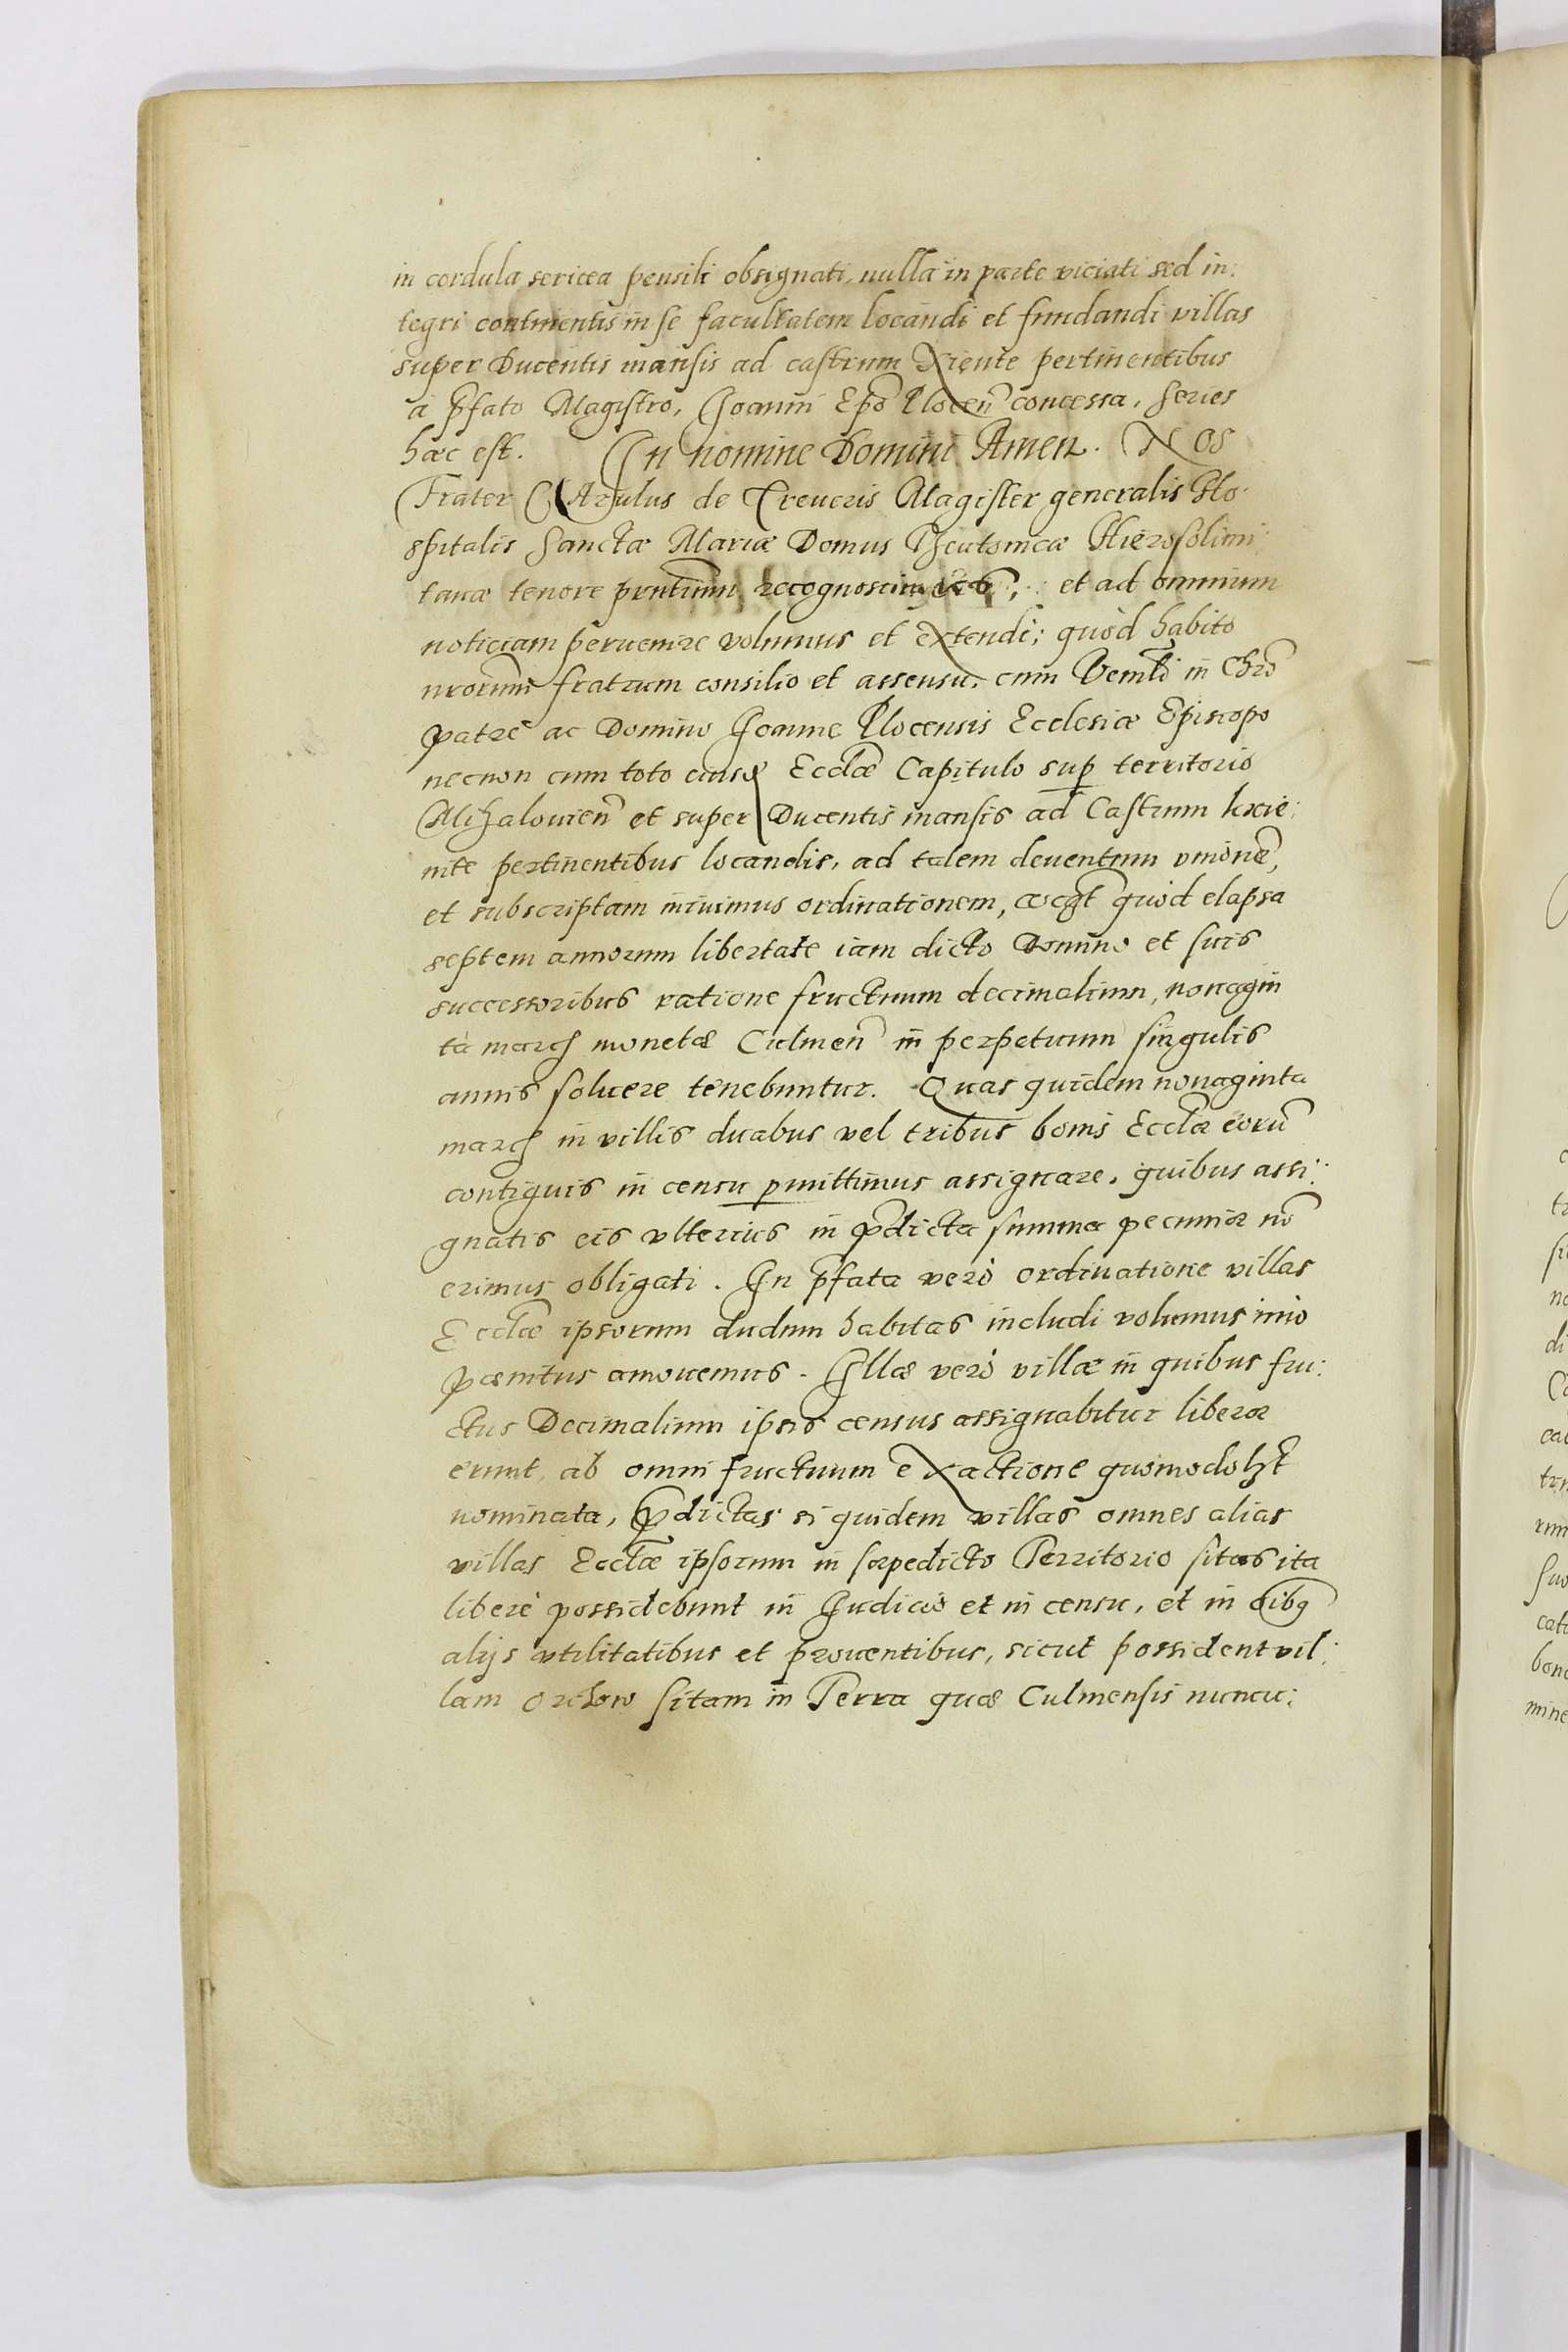 in cordula sericea pensili obsignati, nulla in parte viciati sed in:
tegri continentis in se facultatem locandi et fundandi villas
super Ducentis mansis ad castrum Xiente pertinentibus
a p̄fato Magistro, Joanni Epō Plocen̄ concessa, series
hæc est. In nomine Domini Amen. Nos
Frater CArulus de Treueris Magister generalis Ho:
spitalis Sanctæ Mariæ Domus Theutonicæ Hierosolimi:
tanæ tenore pn̄tium recognoscimus et ad omnium
noticiam peruenire volumus et extendi; quòd habito
nr̄orum fratrum consilio et assensu, cum Venlī in Chrō
patre ac Domino Joanne Plocensis Ecclesiæ Episcopo
necnon cum toto eiusꝗ Ecclǣ Capitulo suꝑ territorio
Mihalouien̄ et super Ducentis mansis ad Castrum kxie:
nite pertinentibus locandis, ad talem deuentum vnionē,
et subscriptam iniuimus ordinationem, quòd elapsa
septem annorum libertate iam dicto Domino et suis
successoribus ratione fructuum decimalium, nonagin
ta march monetæ Culmen̄ in perpetuum singulis
annis soluere tenebuntur. Quas quidem nonaginta
march in villis duabus vel tribus bonis Ecclæ eorū
contiguis in censu ꝑmittimus assignare, quibus assi:
gnatis eis vlterius in p̄dicta summa pecuniæ nō
erimus obligati. In p̄fata verò ordinatione villas
Ecclǣ ipsorum dudum habitas includi volumus imò
pænitus amouemus. Illæ verò villæ in quibus fru:
ctus Decimalium ipsis census assignabitur liberæ
erunt ab omni fructuum exactione quomodolꝫt
nominata, p̄dictas si quidem villas omnes alias
villas Ecclǣ ipsorum in sæpedicto Territorio sitas ita
liberè possidebunt in Judicio et in censu, et in oībꝯ
alijs vtilitatibus et prouentibus, sicut possident vil:
lam Orchow sitam in Terra quæ Culmensis nuncu: